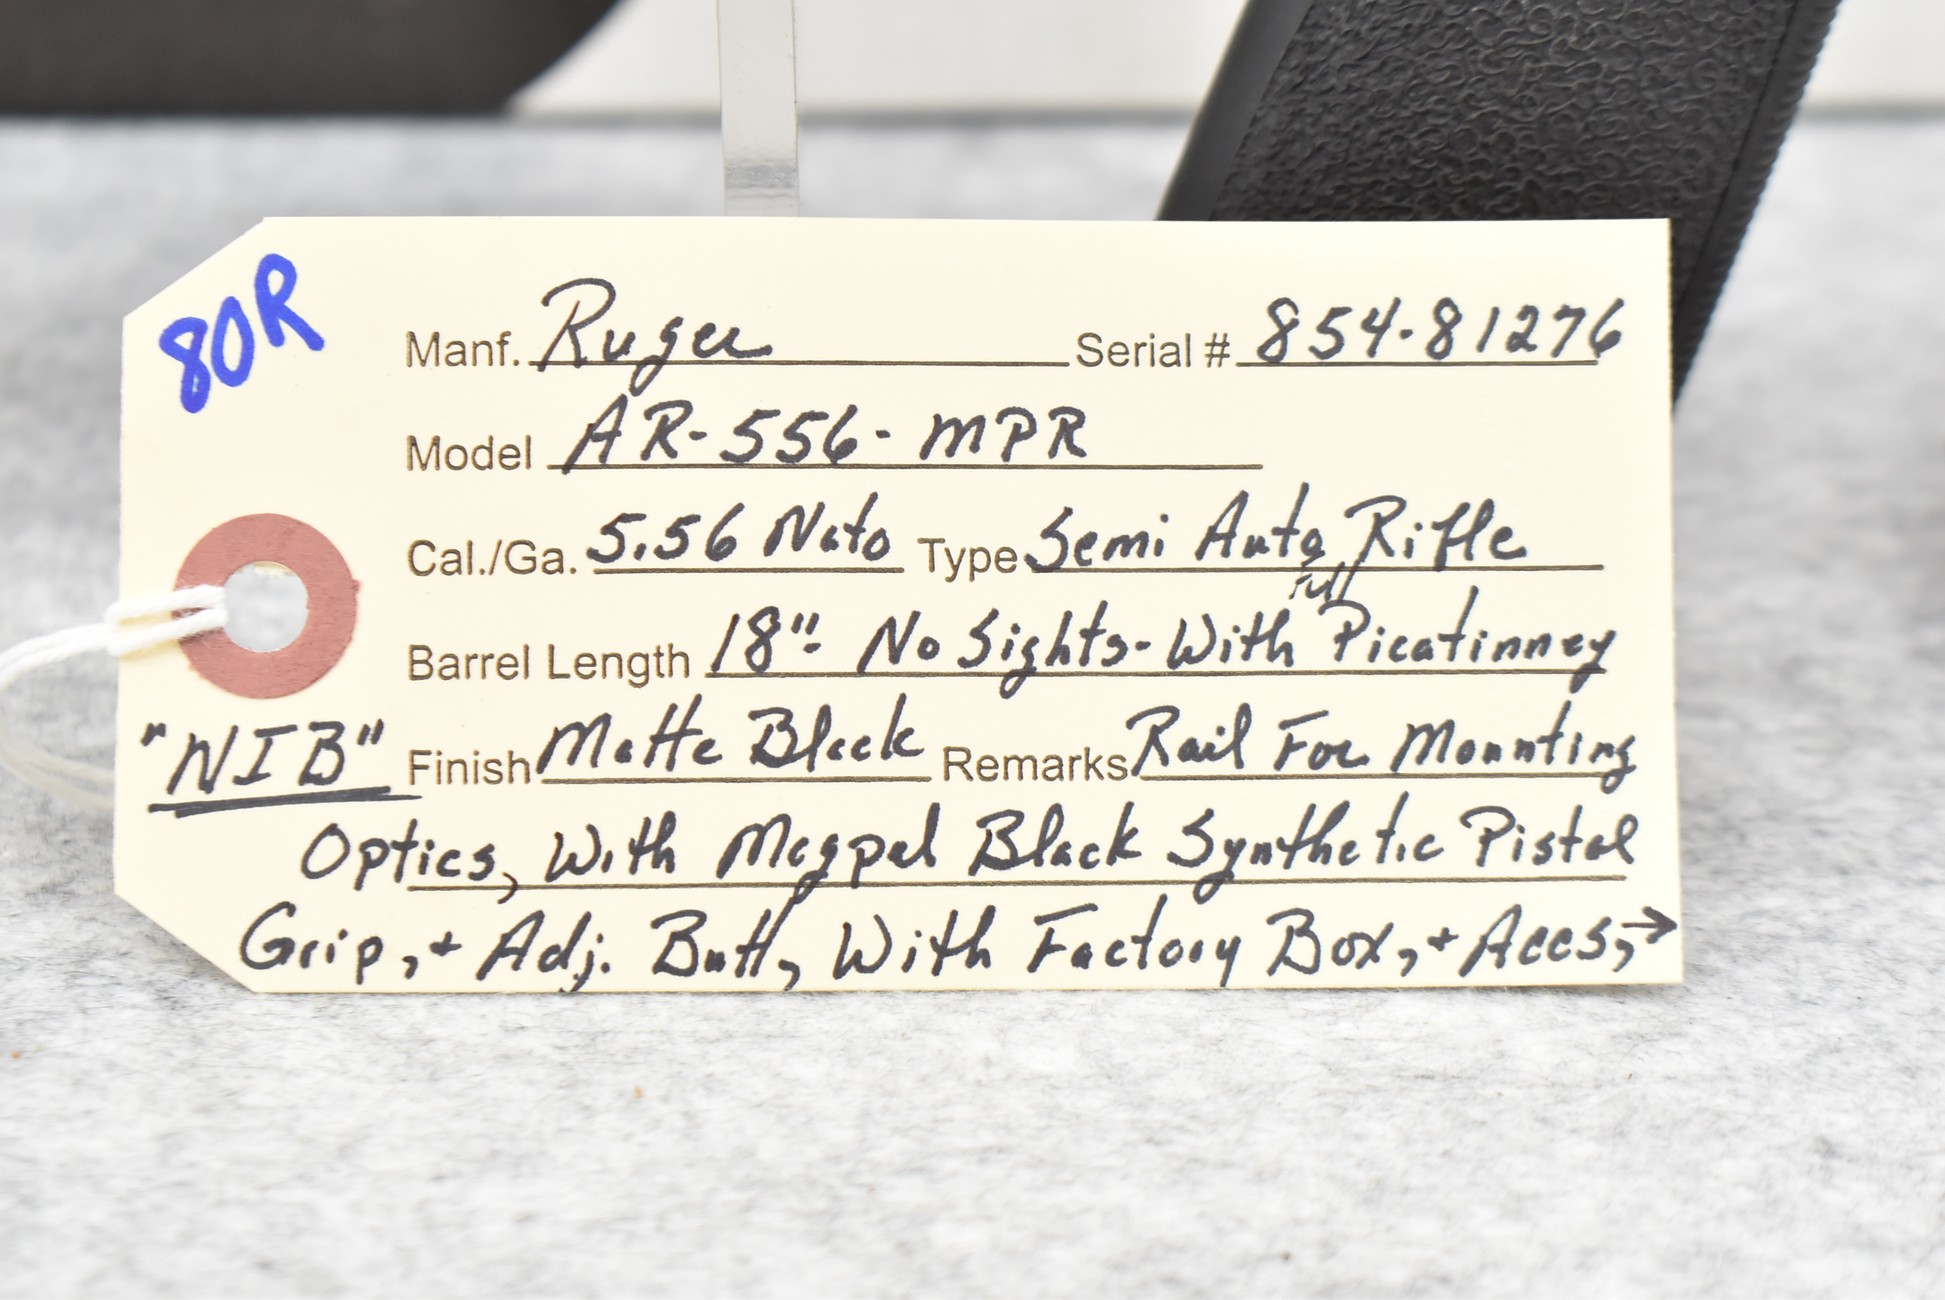 80R
Manf. Ruger Serial # 854-81276
Model AR-556-MPR
Cal./Ga. 5.56 Nato Type Semi Auto Rifle
Full
Barrel Length 18"- No Sights-With Picatinney
"NIB" Finish Matte Black Remarks Rail For Mounting
Optics, With Magpul Black Synthetic Pistol
Grip, + Adj. Butt, With Factory Box, + Aces, →